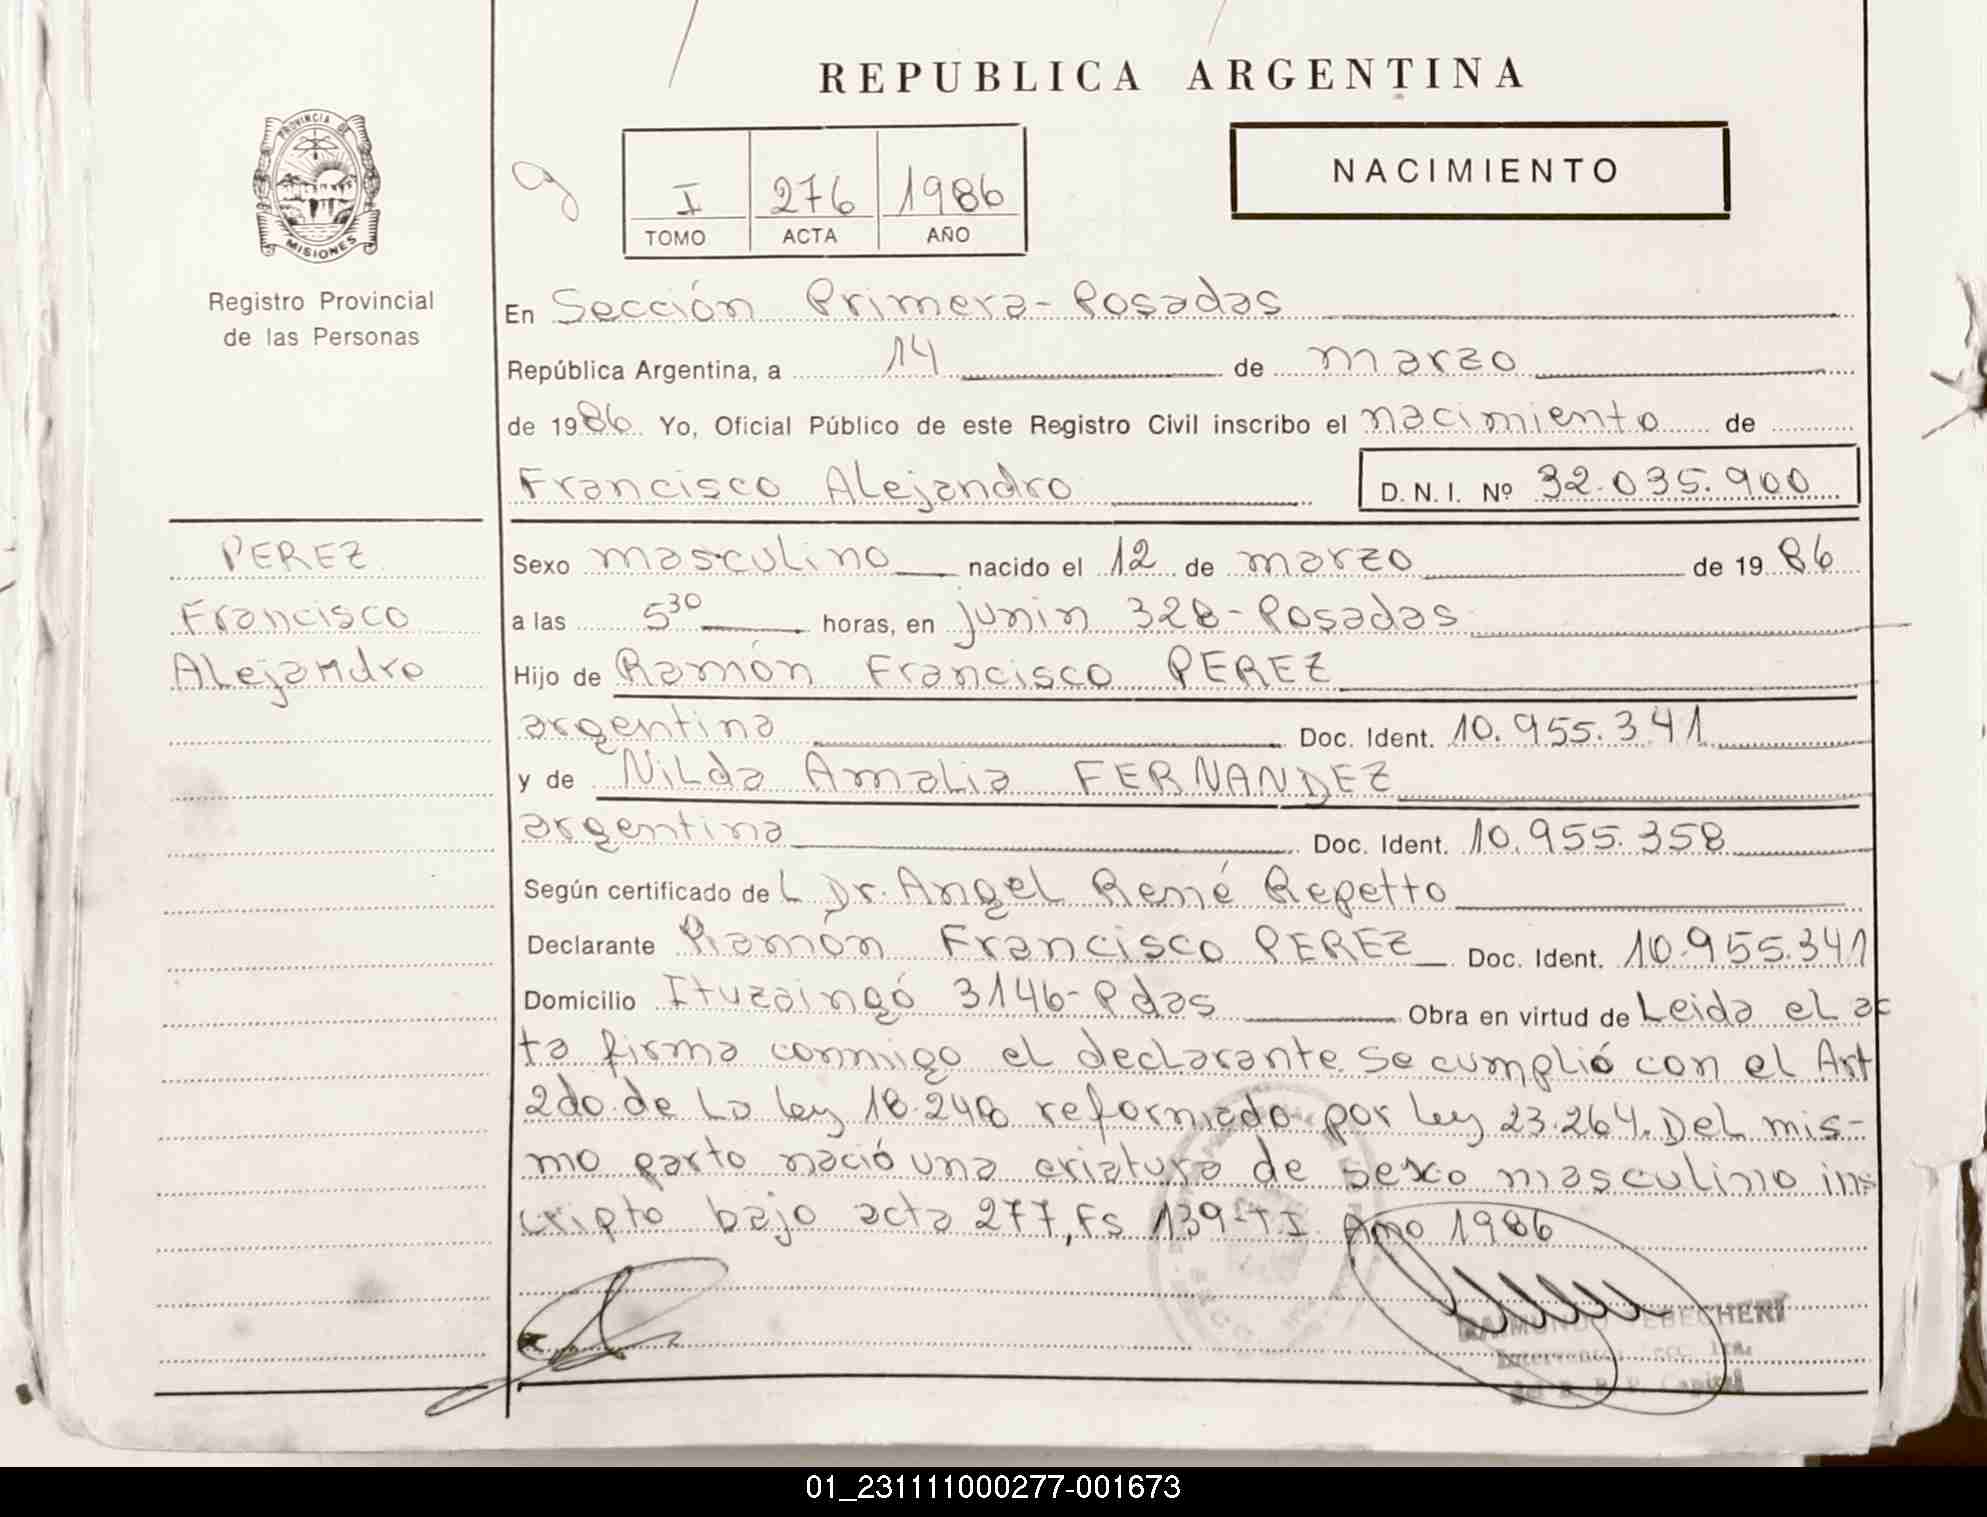 REPUBLICA ARGENTINA
PROVINCIA DE
MISIONES
Registro Provincial
de las Personas
I 276 1986
TOMO ACTA AÑO
NACIMIENTO
En Sección Primera - Posadas
República Argentina, a 14 de marzo
de 1986. Yo, Oficial Público de este Registro Civil inscribo el nacimiento de
Francisco Alejandro D. N. I. Nº 32.035.900
PEREZ
Francisco
Alejandro
Sexo masculino nacido el 12 de marzo de 1986
a las 5 30 horas, en junin 328 - Posadas
Hijo de Ramón Francisco PEREZ
argentina Doc. Ident. 10.955.341
y de Nilda Amalia FERNANDEZ
argentina Doc. Ident. 10.955.358
Según certificado de L Dr. Angel René Repetto
Declarante Ramón Francisco PEREZ Doc. Ident. 10.955.341
Domicilio Ituzaingó 3146 - Pdas Obra en virtud de Leida el ac
ta firma conmigo el declarante. Se cumplió con el Art
2do. de La ley 18.248 reformado por ley 23.264. Del mis-
mo parto nació una criatura de sexo masculino ins
cripto bajo acta 277, Fs 139 - T I. Año 1986
RAIMUNDO
Capital
01_231111000277-001673